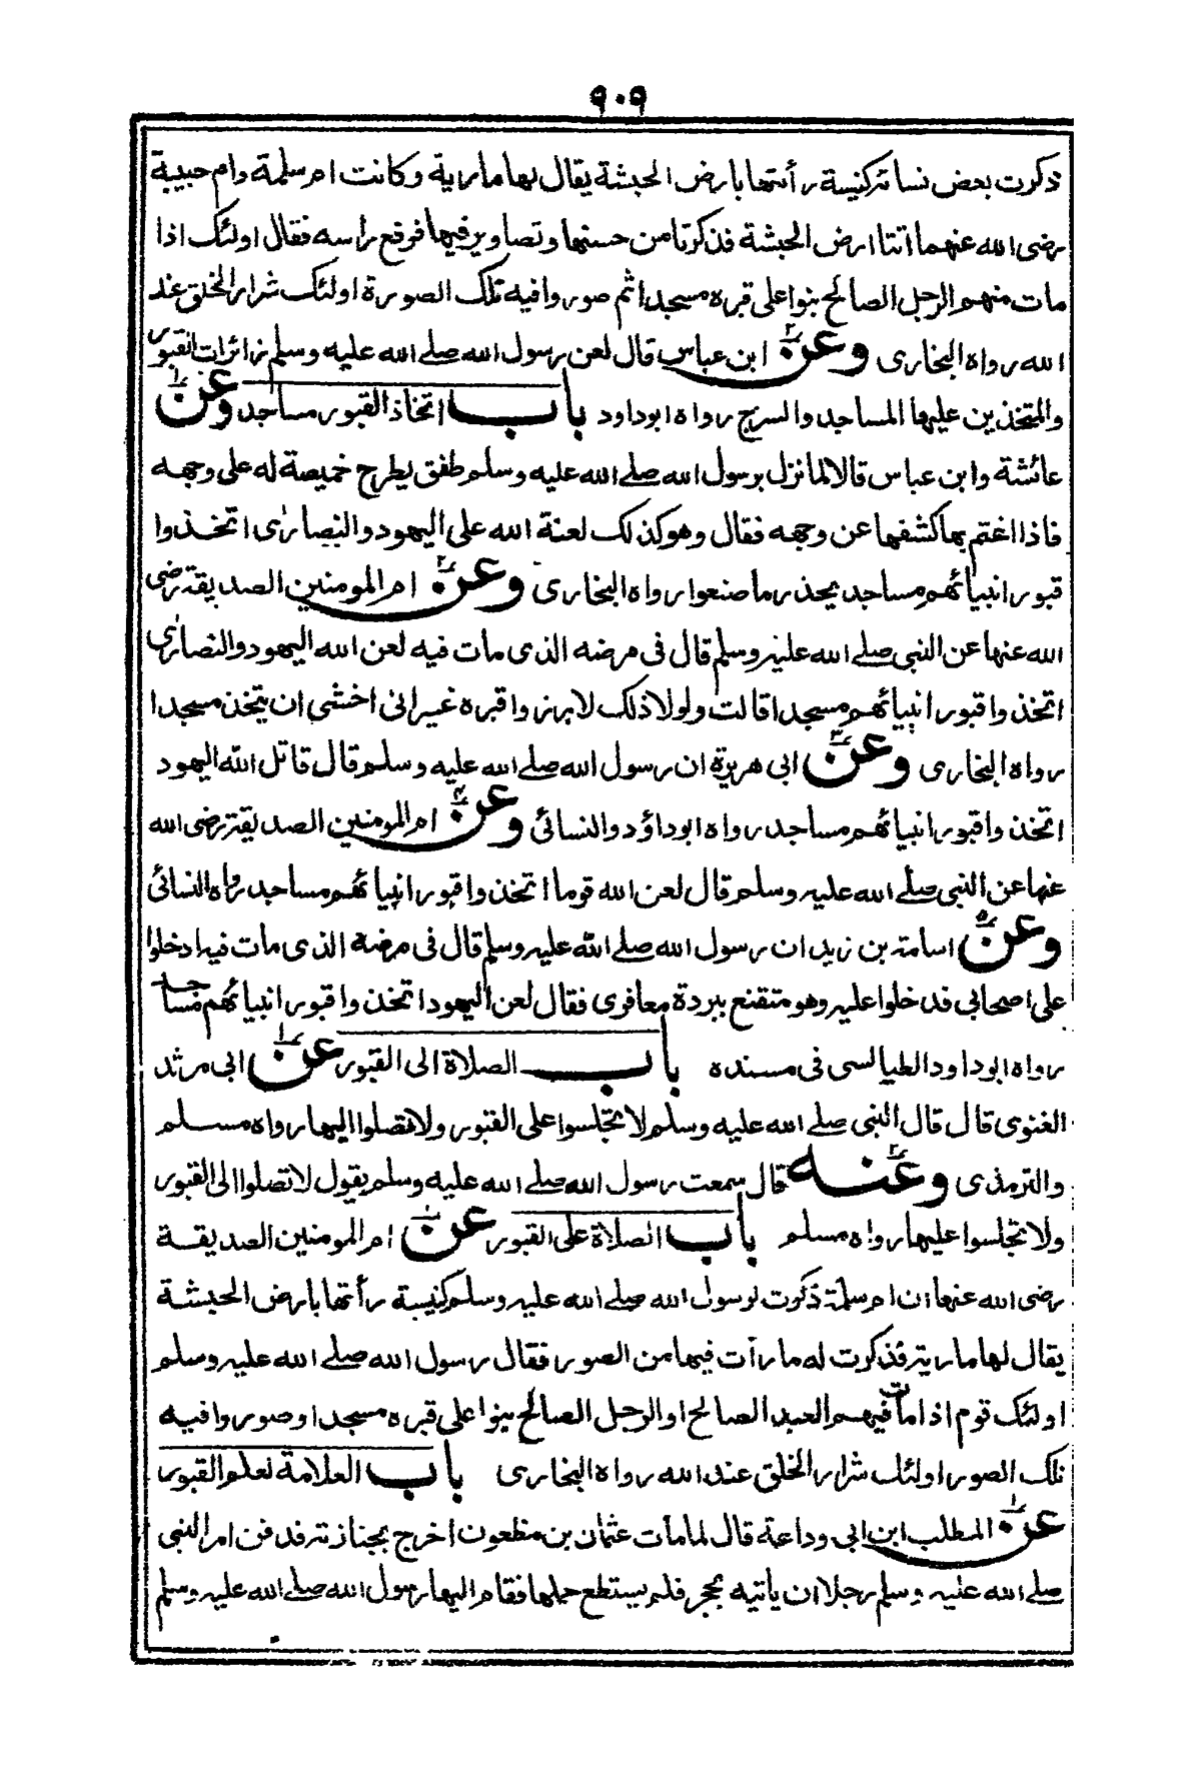 ٩٠٩
ذكرت بعض نسائه كنيسة رأتها بارض الحبشة يقال لها مارية وكانت ام سلمة وام حبيبة
رضى الله عنهما اتتا ارض الحبشة فذكرتا من حسنها وتصاوير فيها فرفع راسه فقال اولئك اذا
مات منهم الرجل الصالح بنوا على قبره مسجدا ثم صوروا فيه تلك الصورة اولئك شرار الخلق عند
الله رواه البخارى وعن ابن عباس قال لعن رسول الله صلے الله عليه وسلم زائرات القبور
والمتخذين عليها المساجد والسرج رواه ابوداود باب اتخاذ القبور مساجد وعن
عائشة وابن عباس قالا لما نزل برسول الله صلے الله عليه وسلم طفق يطرح خميصة له على وجهه
فاذا اغتم بها كشفها عن وجهه فقال وهو كذلك لعنة الله على اليهود والنصارى اتخذوا
قبور انبيائهم مساجد يحذر ما صنعوا رواه البخارى وعن ام المومنين الصديقة رضى
الله عنها عن النبى صلے الله عليه وسلم قال فى مرضه الذى مات فيه لعن الله اليهود والنصارى
اتخذوا قبور انبيائهم مسجدا قالت ولولا ذلك لابرزوا قبره غير انى اخشى ان يتخذ مسجدا
رواه البخارى وعن ابى هريرة ان رسول الله صلے الله عليه وسلم قال قاتل الله اليهود
اتخذوا قبور انبيائهم مساجد رواه ابوداؤد والنسائى وعن ام المومنين الصديقة رضى الله
عنها عن النبى صلے الله عليه وسلم قال لعن الله قوما اتخذوا قبور انبيائهم مساجد رواه النسائى
وعن اسامة بن زيد ان رسول الله صلے الله عليه وسلم قال فى مرضه الذى مات فيه ادخلوا
على اصحابى فدخلوا عليه وهو متقنع ببردة معافرى فقال لعن اليهود اتخذوا قبور انبيائهم مساجد
رواه ابوداود الطيالسى فى مسنده باب الصلاة الى القبور عن ابى مرثد
الغنوى قال قال النبى صلے الله عليه وسلم لا تجلسوا على القبور ولا تصلوا اليها رواه مسلم
والترمذى وعنه قال سمعت رسول الله صلے الله عليه وسلم يقول لا تصلوا الى القبور
ولا تجلسوا عليها رواه مسلم باب الصلاة على القبور عن ام المومنين الصديقة
رضى الله عنها ان ام سلمة ذكرت لرسول الله صلے الله عليه وسلم كنيسة رأتها بارض الحبشة
يقال لها مارية فذكرت له ما رأت فيها من الصور فقال رسول الله صلے الله عليه وسلم
اولئك قوم اذا مات فيهم العبد الصالح او الرجل الصالح بنوا على قبره مسجدا وصوروا فيه
تلك الصور اولئك شرار الخلق عند الله رواه البخارى باب العلامة لعلم القبور
عن المطلب ابن ابى وداعة قال لما مات عثمان بن مظعون اخرج بجنازته فدفن امر النبى
صلے الله عليه وسلم رجلا ان ياتيه بحجر فلم يستطع حملها فقام اليها رسول الله صلے الله عليه وسلم